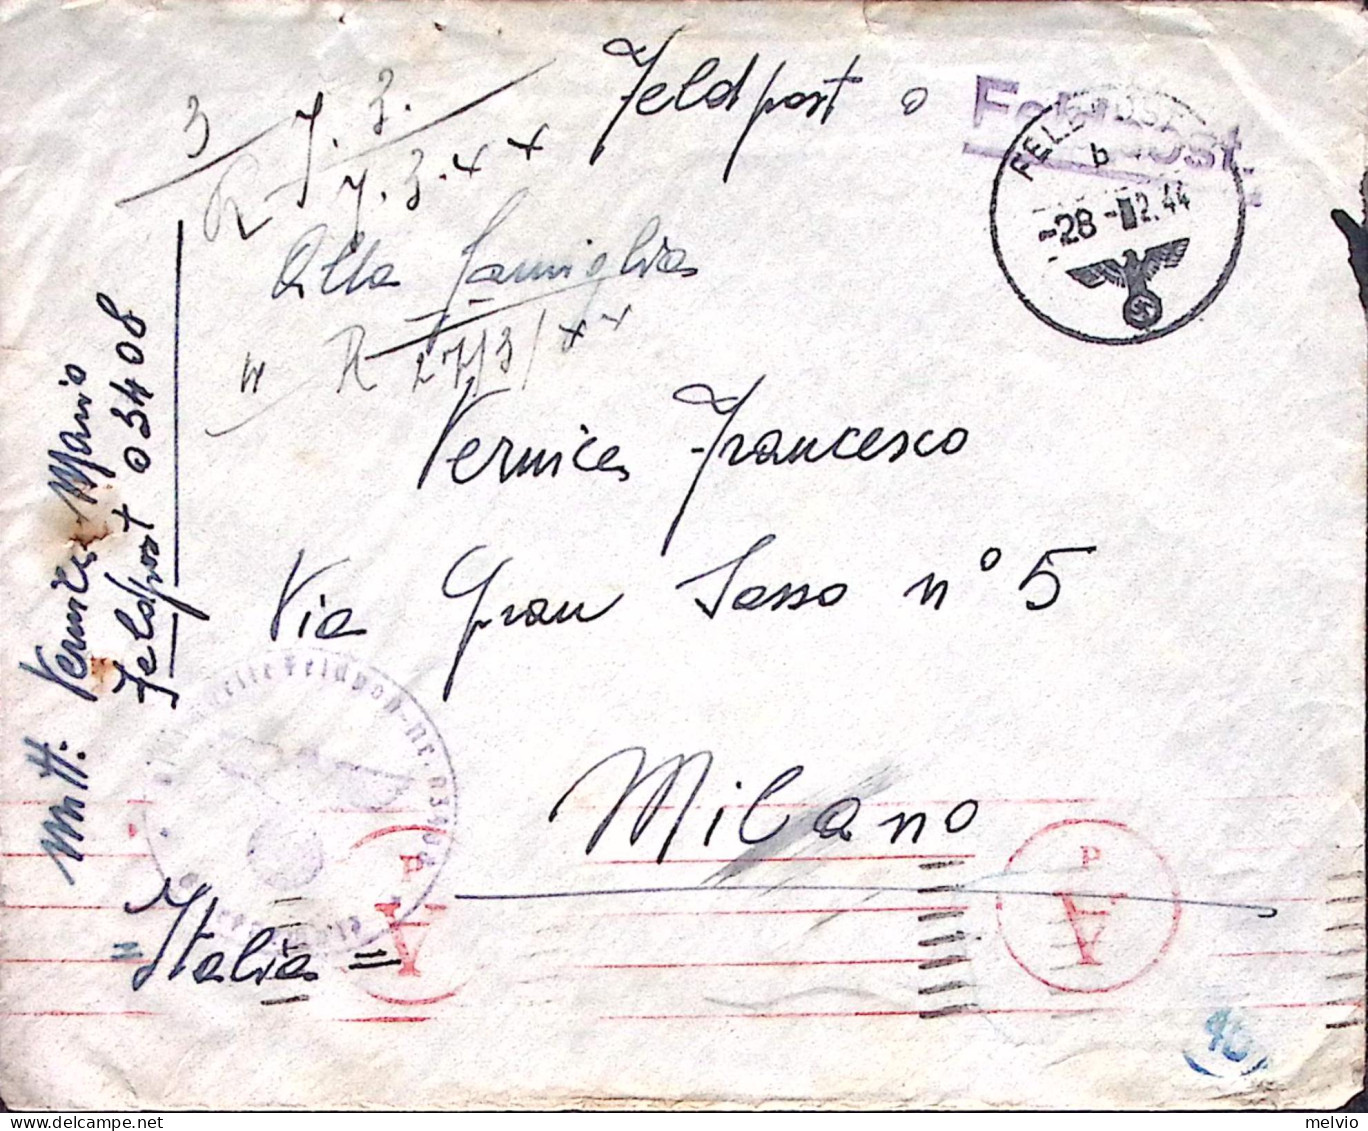 Feldpost
Feldpost.
FELDPOST
b
-28.-12.44
3 7.3.
R 7.3.XX
Alla famiglia
R 27/3/XX
Vernice Francesco
Via Gran Sasso n° 5
Milano
"Italia =
mitt: Vernice Mario
Feldpost 03408
Feldpost-Nr. 03408
P
P
melvio